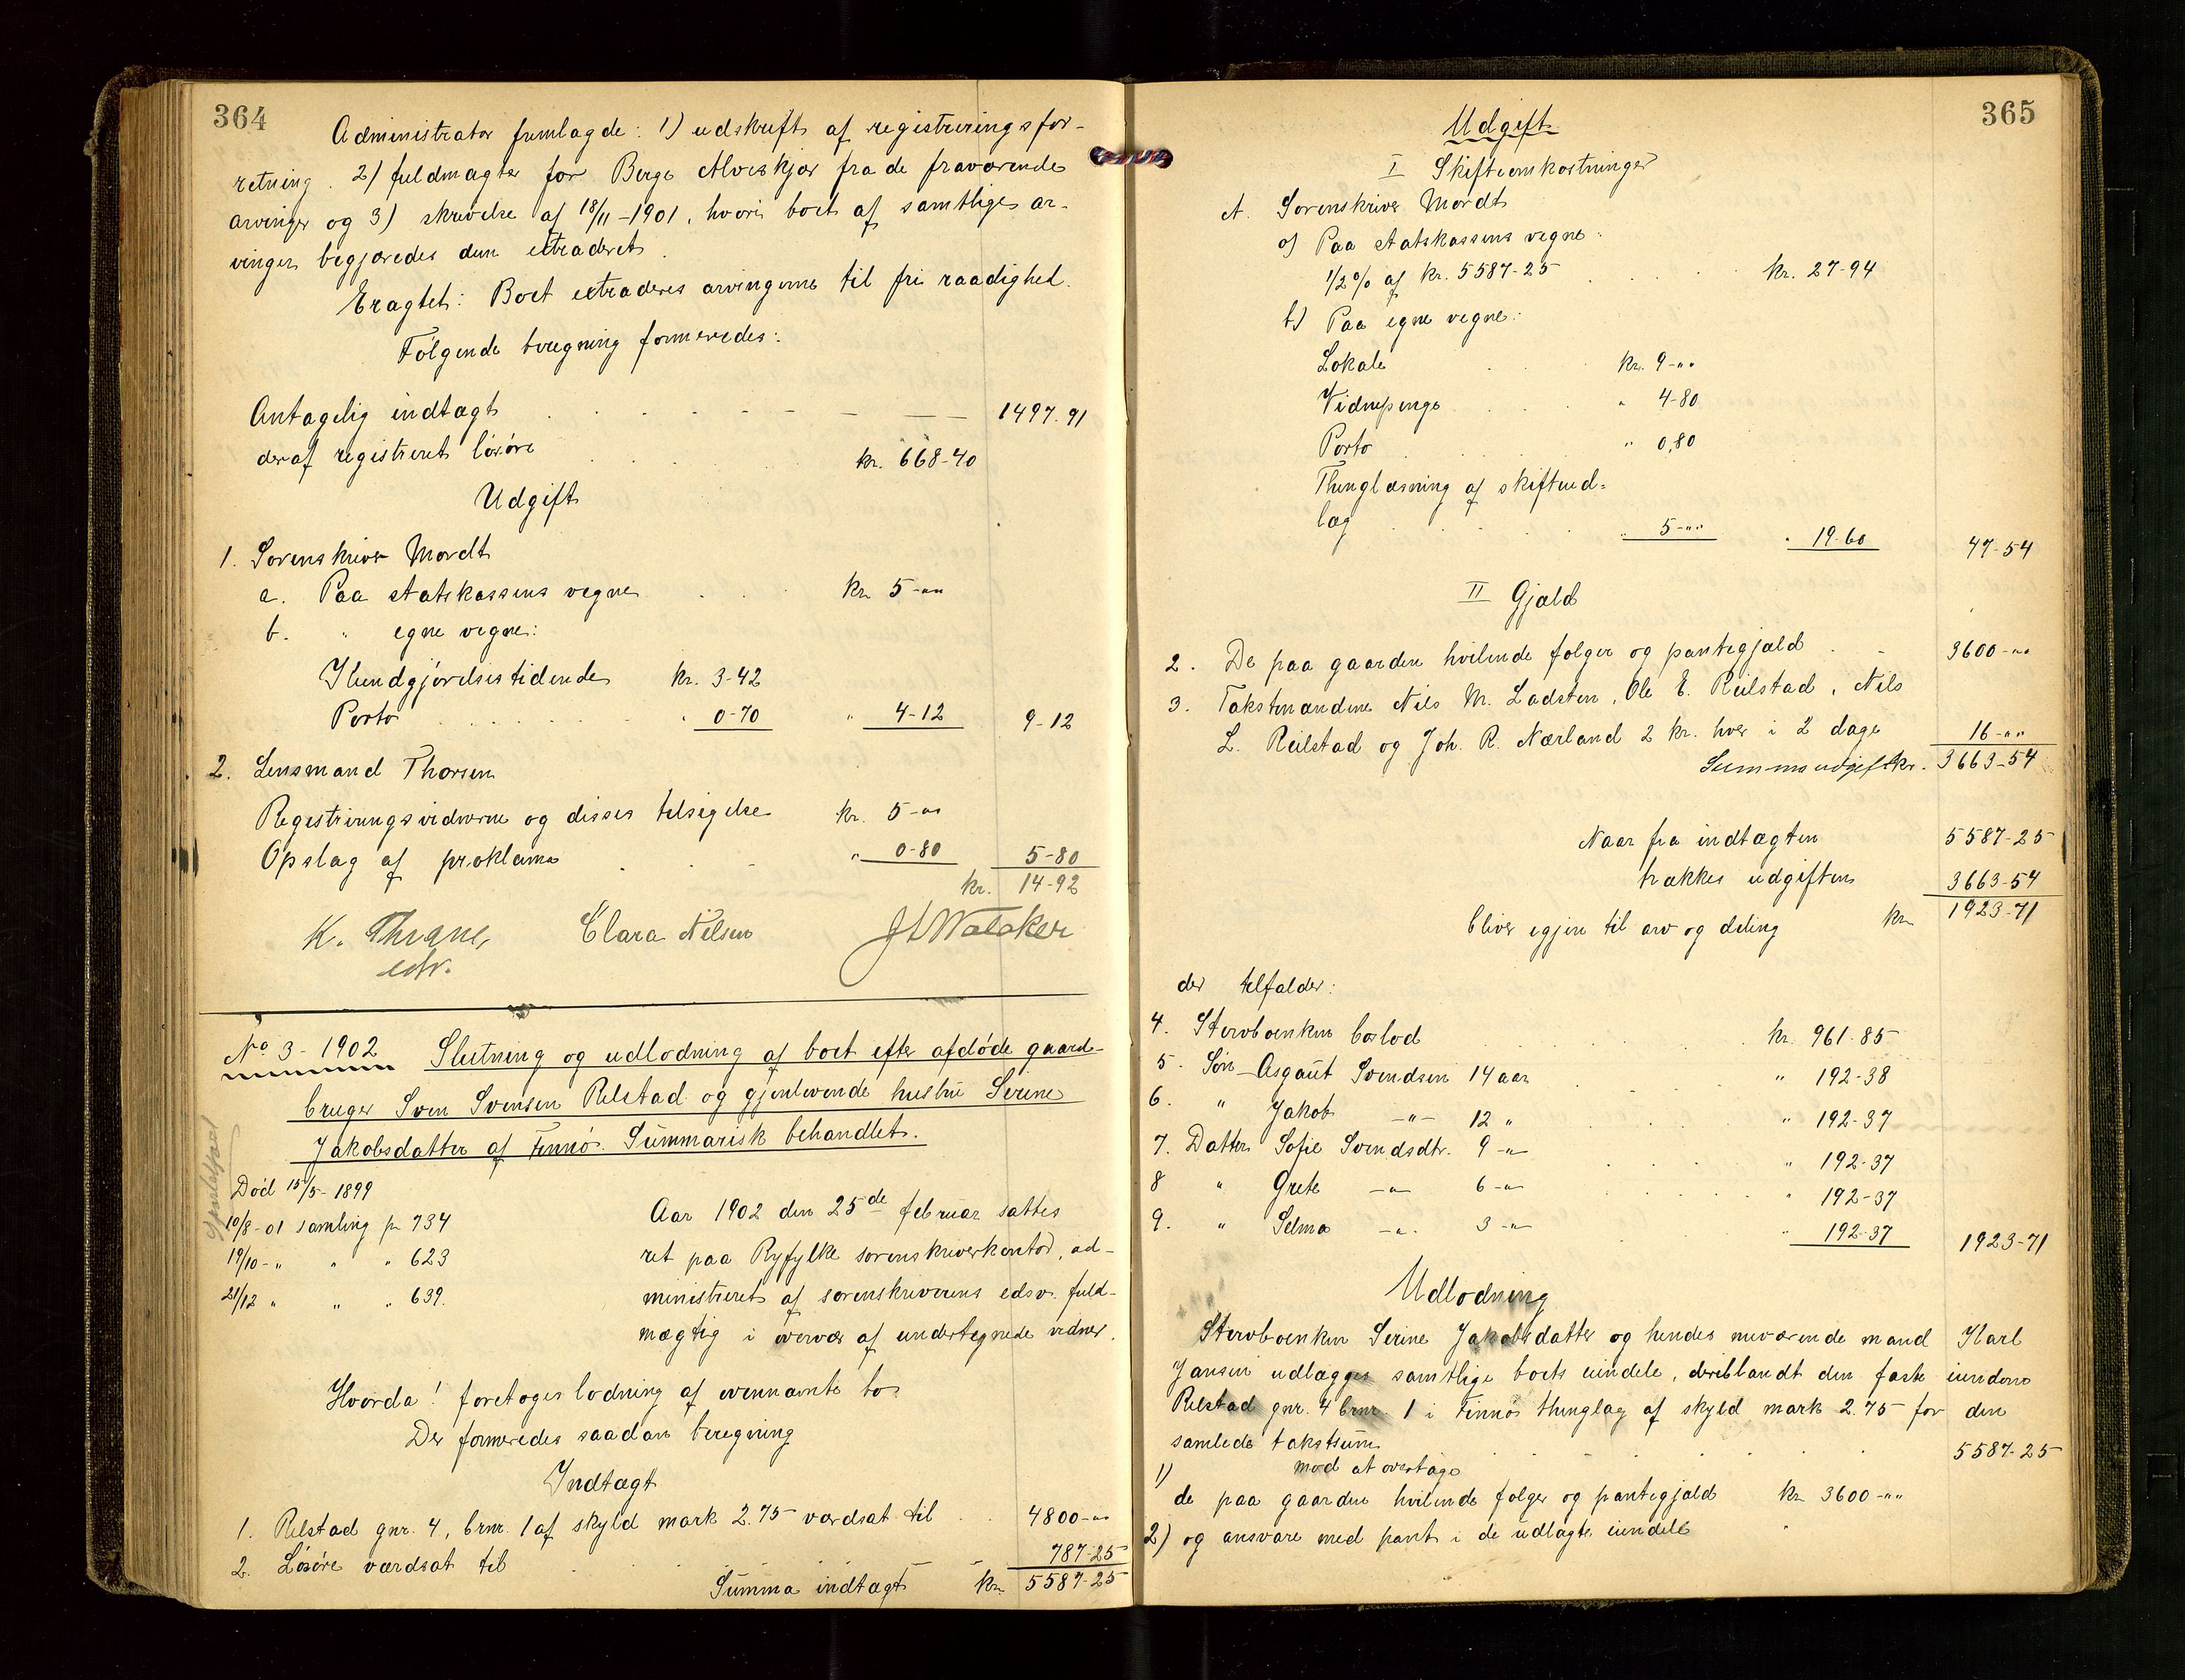 364
Administrator fremlagde: 1) udskrift af registreringsfor-
retning. 2) fuldmagter for Berge Alveskjær fra de fraværende
arvinger og 3) skrivelse af 18/11-1901, hvori boet af samtlige ar-
vinger begjæredes dem extraderet.
Eragtet: Boet extraderes arvingerne til fri raadighed.
Følgende beregning formeredes:
Antagelig indtægt 1497-91
deraf registreret løsøre kr. 668-40
Udgift
1. Sorenskriver Mordt
a. Paa statskassens vegne kr. 5-""
b. " egne vegne:
Kundgjørelsestidende kr. 3-42
Porto " 0-70 " 4-12 9-12
2. Lensmand Thorsen
Registreringsvidnerne og disses tilsigelse kr. 5-""
Opslag af proklama " 0-80 5-80
kr. 14-92
K. Thrane, Clara Nilsen
edv.
No 3-1902 Slutning og udlodning af boet efter afdøde gaard-
bruger Sven Svensen Relstad og gjenlevende hustru Serine
Jakobsdatter af Finnø. Summarisk behandlet.
Død 15/5-1899
10/8-01 samling p. 734
19/10-" " " 623
21/12 " " " 639.
Aar 1902 den 25de februar sattes
ret paa Ryfylke sorenskriverkontor, ad-
ministreret af sorenskriverens edsv. fuld-
mægtig i overvær af undertegnede vidner.
Hvorda! foretoges lodning af ovennævnte bo
Der formeredes saadan beregning
Indtægt
1. Relstad gnr. 4, brnr. 1 af skyld mark 2.75 værdsat til 4800-""
2. Løsøre værdsat til 787-25
Summa indtægt kr. 5587-25
365
Udgift
I Skifteomkostninger
A. Sorenskriver Mordt
a) Paa statskassens vegne:
1/2 % af kr. 5587-25 kr. 27-94
b) Paa egne vegne:
Lokale kr. 9-""
Vidnepenge " 4-80
Porto " 0,80
Thinglæsning af skifteud-
læg " 5-"" " 19-60 47-54
II Gjæld
2. De paa gaarden hvilende følger og pantegjæld 3600-""
3. Takstmændene Nils M. Ladsten, Ole E. Reilstad, Nils
L. Reilstad og Joh. R. Nærland 2 kr. hver i 2 dage 16-""
Summa udgift kr. 3663-54
Naar fra indtægten 5587-25
trækkes udgiften 3663-54
bliver igjen til arv og deling kr. 1923-71
der tilfalder:
4. Stervboenken boslod kr. 961-85
5. Søn Asgaut Svendsen 14 aar " 192-38
6. " Jakob -"- 12 " " 192-37
7. Datter Sofie Svendsdtr. 9 -"- " 192-37
8 " Grete -"- 6 -"- " 192-37
9. " Selma -"- 3 -"- " 192-37 1923-71
Udlodning
Stervboenken Serine Jakobsdatter og hendes nuværende mand Karl
Jansen udlægges samtlige boets eiendele, deriblandt den faste eiendom
Relstad gnr. 4 brnr. 1 i Finnø thinglag af skyld mark 2.75 for den
samlede takstsum 5587-25
mod at overtage
1) de paa gaarden hvilende følger og pantegjæld kr. 3600-""
2) og ansvare med pant i de udlagte eiendele